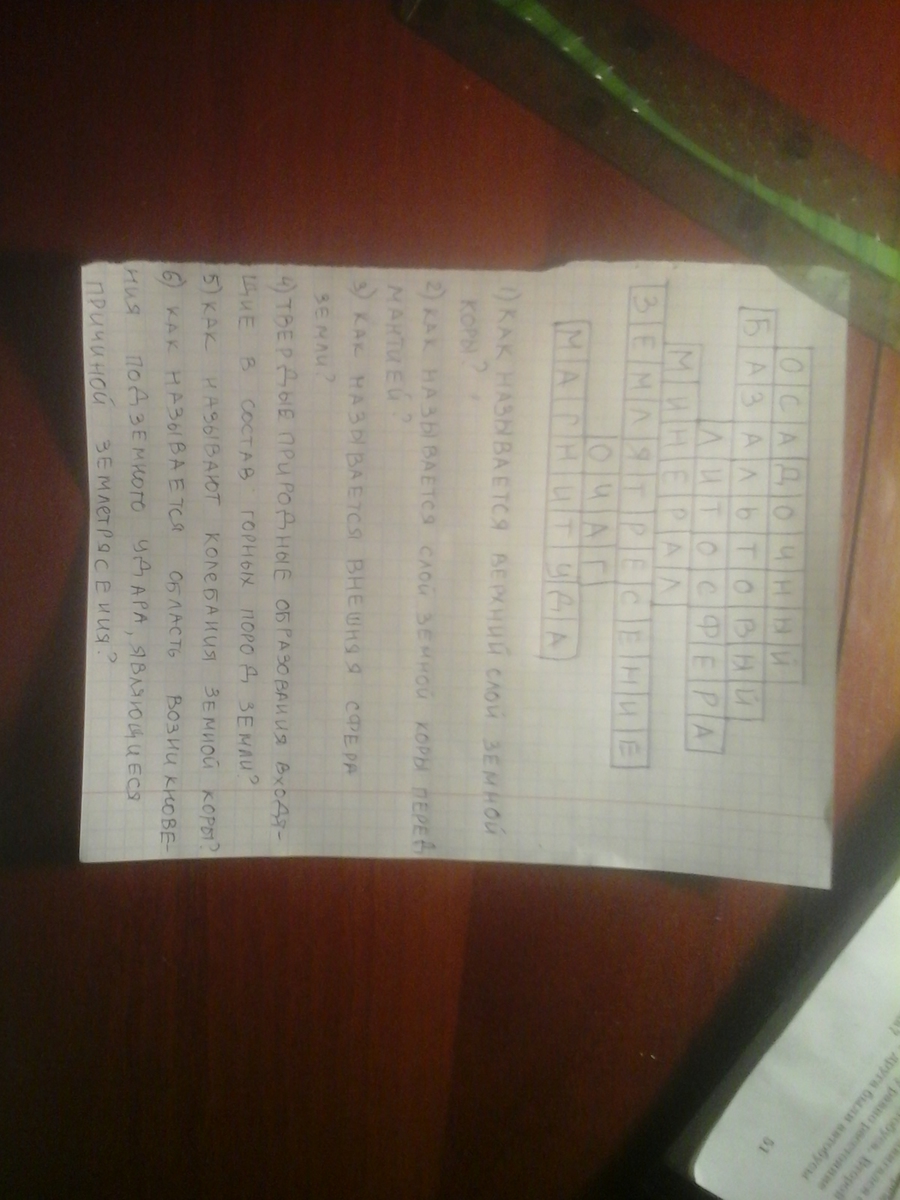 ОСАДОЧНЫЙ
БАЗАЛЬТОВЫЙ
ЛИТОСФЕРА
МИНЕРАЛ
ЗЕМЛЯТРЕСЕНИЕ
ОЧАГ
МАГНИТУДА
1) КАК НАЗЫВАЕТСЯ ВЕРХНИЙ СЛОЙ ЗЕМНОЙ
КОРЫ?
2) КАК НАЗЫВАЕТСЯ СЛОЙ ЗЕМНОЙ КОРЫ ПЕРЕД
МАНТИЕЙ?
3) КАК НАЗЫВАЕТСЯ ВНЕШНЯЯ СФЕРА
ЗЕМЛИ?
4) ТВЕРДЫЕ ПРИРОДНЫЕ ОБРАЗОВАНИЯ ВХОДЯ-
ЩИЕ В СОСТАВ ГОРНЫХ ПОРОД ЗЕМЛИ?
5) КАК НАЗЫВАЮТ КОЛЕБАНИЯ ЗЕМНОЙ КОРЫ?
6) КАК НАЗЫВАЕТСЯ ОБЛАСТЬ ВОЗНИКНОВЕ-
НИЯ ПОДЗЕМНОГО УДАРА, ЯВЛЯЮЩИЕСЯ
ПРИЧИНОЙ ЗЕМЛЕТРЯСЕНИЯ?
51